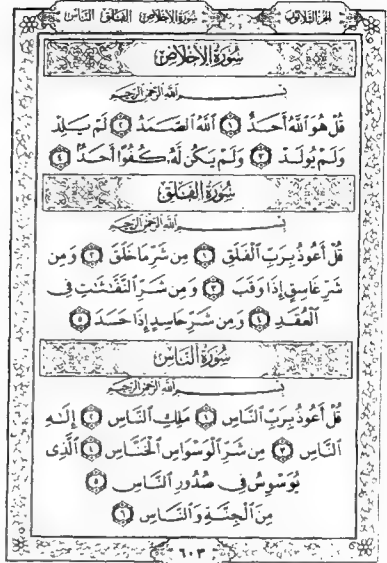 سُورَةُ الإِخْلَاصِ الفَلَقِ النَّاسِ
الجُزْءُ الثَّلَاثُونَ
سُورَةُ الإِخْلَاصِ
بِسْمِ ٱللَّهِ ٱلرَّحْمَٰنِ ٱلرَّحِيمِ
قُلْ هُوَ ٱللَّهُ أَحَدٌ ١ ٱللَّهُ ٱلصَّمَدُ ٢ لَمْ يَلِدْ
وَلَمْ يُولَدْ ٣ وَلَمْ يَكُن لَّهُۥ كُفُوًا أَحَدٌ ٤
سُورَةُ الفَلَقِ
بِسْمِ ٱللَّهِ ٱلرَّحْمَٰنِ ٱلرَّحِيمِ
قُلْ أَعُوذُ بِرَبِّ ٱلْفَلَقِ ١ مِن شَرِّ مَا خَلَقَ ٢ وَمِن
شَرِّ غَاسِقٍ إِذَا وَقَبَ ٣ وَمِن شَرِّ ٱلنَّفَّٰثَٰتِ فِى
ٱلْعُقَدِ ٤ وَمِن شَرِّ حَاسِدٍ إِذَا حَسَدَ ٥
سُورَةُ النَّاسِ
بِسْمِ ٱللَّهِ ٱلرَّحْمَٰنِ ٱلرَّحِيمِ
قُلْ أَعُوذُ بِرَبِّ ٱلنَّاسِ ١ مَلِكِ ٱلنَّاسِ ٢ إِلَٰهِ
ٱلنَّاسِ ٣ مِن شَرِّ ٱلْوَسْوَاسِ ٱلْخَنَّاسِ ٤ ٱلَّذِى
يُوَسْوِسُ فِى صُدُورِ ٱلنَّاسِ ٥
مِنَ ٱلْجِنَّةِ وَٱلنَّاسِ ٦
٦٠٣